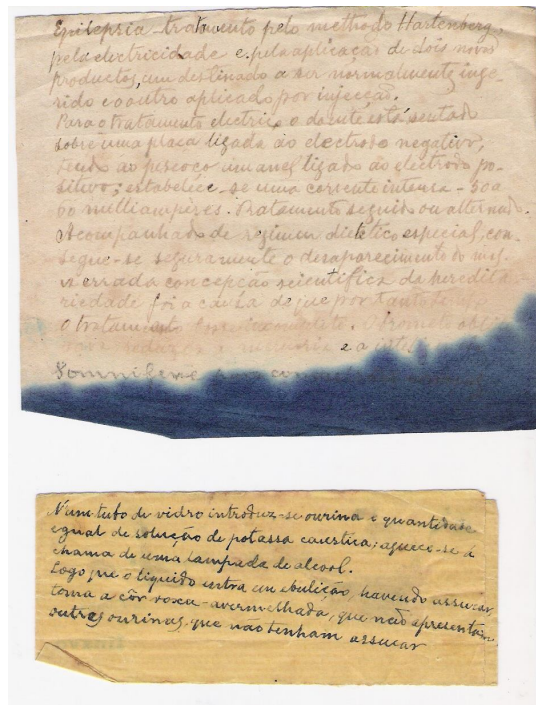 Epilepsia - tratamento pelo methodo Hartenberg,
pela electricidade e pela aplicação de dois novos
productos, um destinado a ser normalmente inge-
rido e o outro aplicado por injecção.
Para o tratamento electrico o doente está sentado
sobre uma placa ligada ao electrodo negativo,
tendo ao pescoço um anel ligado ao electrodo po-
sitivo; estabelece-se uma corrente intensa - 50 a
60 milliampères. Tratamento seguido ou alternado.
Acompanhado de regimen dietético especial, con-
segue-se seguramente o desaparecimento do mal.
A errada concepção scientifica da heredita-
riedade foi a causa de que por tanto tempo
O tratamento
e a
Somnifene
N'um tubo de vidro introduz-se ourina e quantidade
egual de solução de potassa caustica; aquece-se á
chama de uma lampada de alcool.
Logo que o liquido entra em ebulição, havendo assucar,
toma a côr roxa-avermelhada, que não apresentam
outras ourinas que não tenham assucar